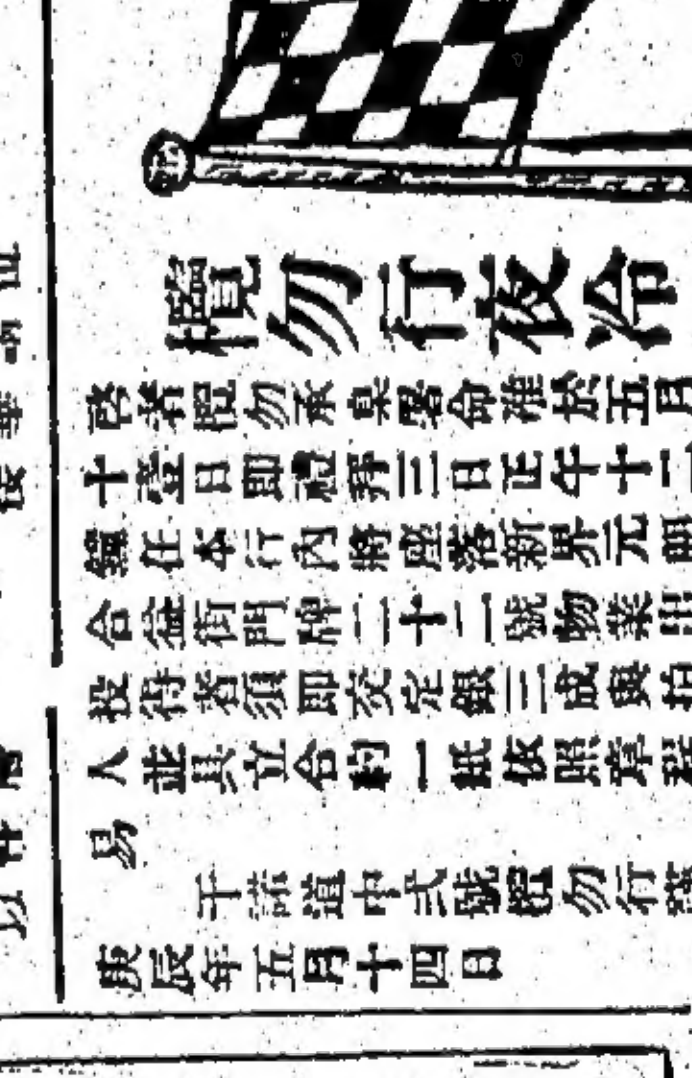 欖勿行夜冷
啓者欖勿承臬署命准於五月
十壹日即禮拜三日正午十二
鐘在本行內將座落新界元朗
合益街門牌二十二號物業出
投得者須即交定銀三成與拍
人並具立合約一紙依照章程
易
干諾道中弍號欖勿行
庚辰年五月十四日